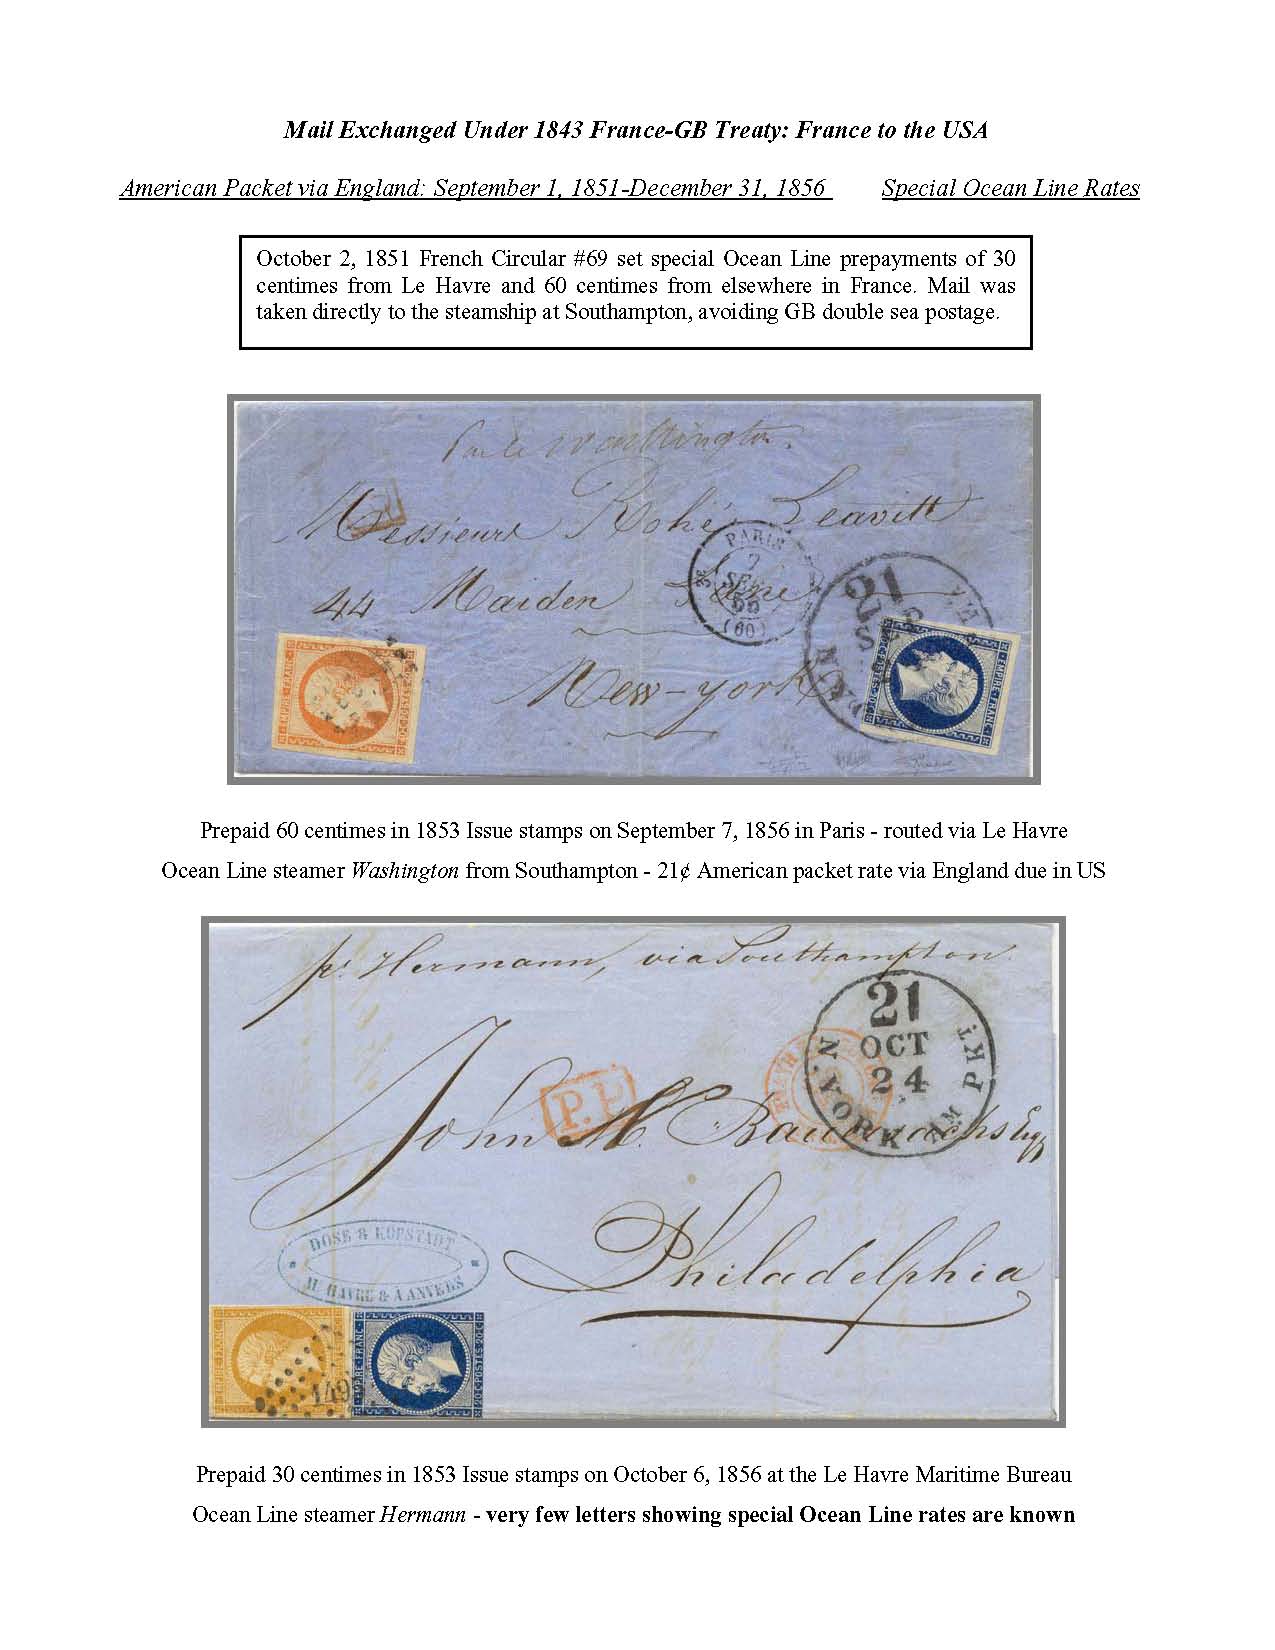 Mail Exchanged Under 1843 France-GB Treaty: France to the USA
American Packet via England: September 1, 1851-December 31, 1856 Special Ocean Line Rates
October 2, 1851 French Circular #69 set special Ocean Line prepayments of 30
centimes from Le Havre and 60 centimes from elsewhere in France. Mail was
taken directly to the steamship at Southampton, avoiding GB double sea postage.
Par le Washington.
Messieurs Rohé Leavitt
44 Maiden Lane
New-york
PARIS
7
SEPT
56
(60)
21
EMPIRE FRANC
40 C POSTES 40 C
EMPIRE FRANC
20 C POSTES 20 C
Prepaid 60 centimes in 1853 Issue stamps on September 7, 1856 in Paris - routed via Le Havre
Ocean Line steamer Washington from Southampton - 21¢ American packet rate via England due in US
pr. Hermann, via Southampton.
21
OCT
24
N. YORK AM PKT
P.P
John M. Esqr
Philadelphia
DOSE & KOPSTADT
AU HAVRE & À ANVERS
149
EMPIRE FRANC
EMPIRE FRANC
20 C POSTES 20 C
Prepaid 30 centimes in 1853 Issue stamps on October 6, 1856 at the Le Havre Maritime Bureau
Ocean Line steamer Hermann - very few letters showing special Ocean Line rates are known